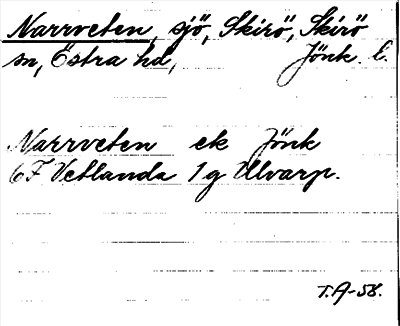 Narrveten, sjö, Skirö, Skirö
sn, Östra hd, Jönk. l.
Narrveten ek Jönk
6F Vetlanda 1g Ulvarp.
T.A-58.